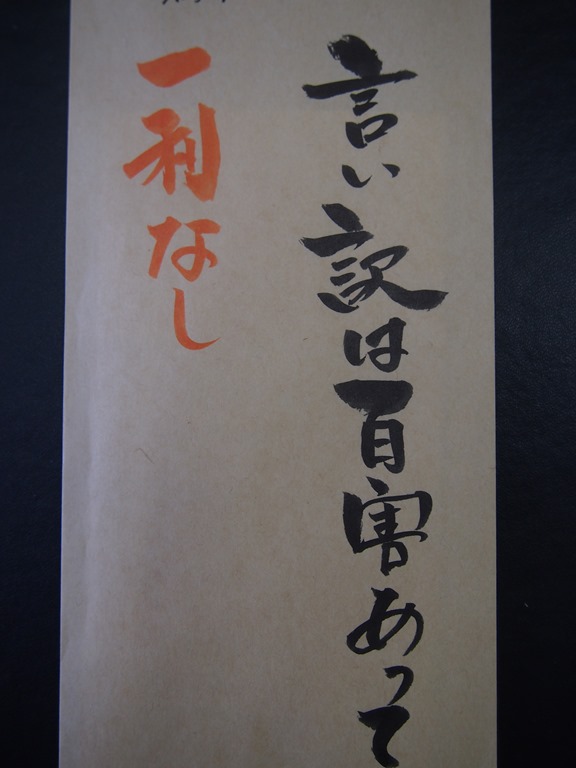 言い訳は百害あって
一利なし